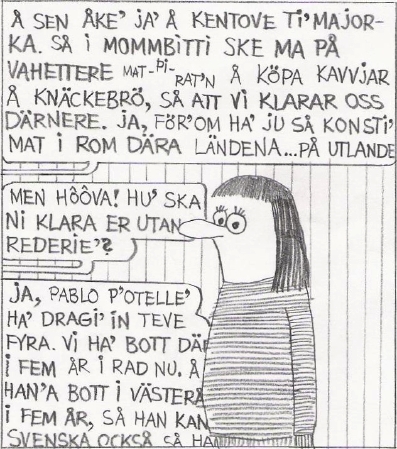 Å SEN ÅKE' JA' Å KENTOVE TI' MAJOR-
KA. SÅ I MOMMBITTI SKE MA PÅ
VAHETTERE MAT-PI-RAT'N Å KÖPA KAVVJAR
Å KNÄCKEBRÖ, SÅ ATT VI KLARAR OSS
DÄRNERE. JA, FÖR'OM HA' JU SÅ KONSTI'
MAT I ROM DÄRA LÄNDENA...PÅ UTLANDE
MEN HÔÔVA! HU' SKA
NI KLARA ER UTAN
REDERIE'?
JA, PABLO P'OTELLE'
HA' DRAGI' IN TEVE
FYRA. VI HA' BOTT DÄR
I FEM ÅR I RAD NU. Å
HAN'A BOTT I VÄSTERÅ
I FEM ÅR, SÅ HAN KAN
SVENSKA OCKSÅ SÅ HA